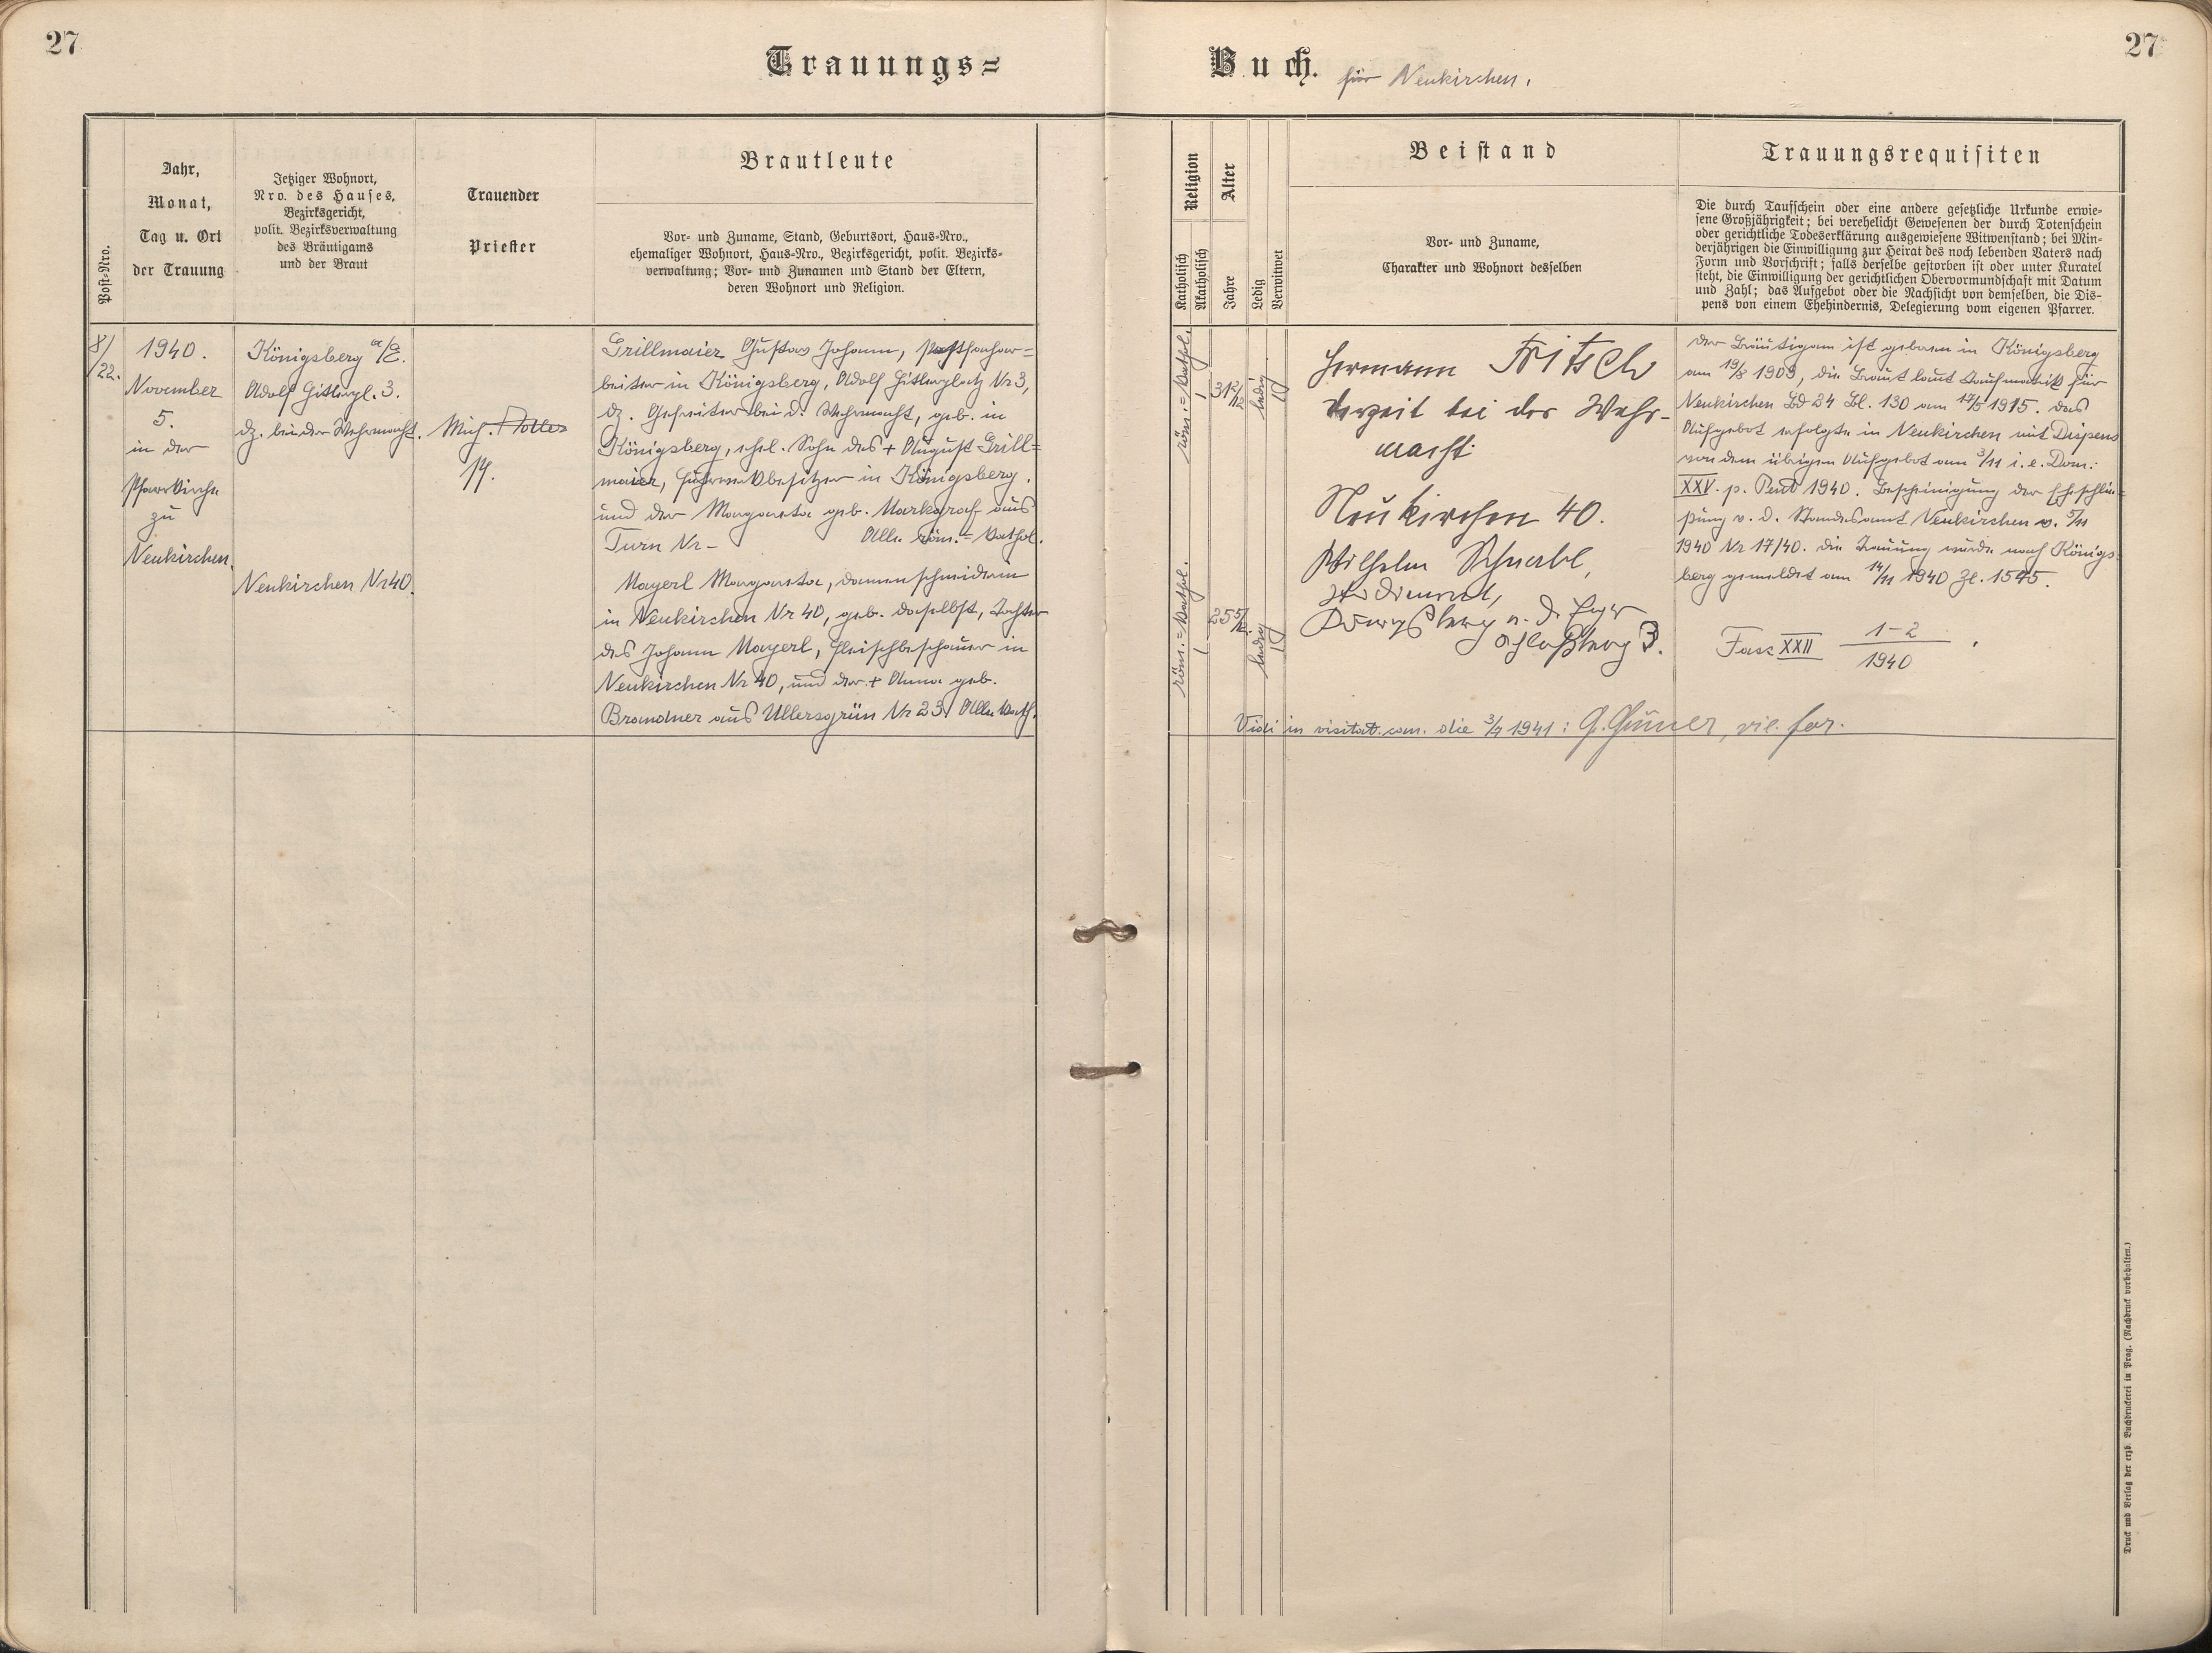 27
27
Trauungs=
Buch. für Neukirchen.
Post-Nro.
Jahr,
Monat,
Tag u. Ort
der Trauung
Jetziger Wohnort,
Nro. des Hauses,
Bezirksgericht,
polit. Bezirksverwaltung
des Bräutigams
und der Braut
Trauender
Priester
Brautleute
Vor- und Zuname, Stand, Geburtsort, Haus-Nro.,
ehemaliger Wohnort, Haus-Nro., Bezirksgericht, polit. Bezirks-
verwaltung; Vor- und Zunamen und Stand der Eltern,
deren Wohnort und Religion.
Religion
Katholisch
Akatholisch
Alter
Jahre
Ledig
Verwitwet
Beistand
Vor- und Zuname,
Charakter und Wohnort desselben
Trauungsrequisiten
Die durch Taufschein oder eine andere gesetzliche Urkunde erwie-
sene Großjährigkeit; bei verehelicht Gewesenen der durch Totenschein
oder gerichtliche Todeserklärung ausgewiesene Witwenstand; bei Min-
derjährigen die Einwilligung zur Heirat des noch lebenden Vaters nach
Form und Vorschrift; falls derselbe gestorben ist oder unter Kuratel
steht, die Einwilligung der gerichtlichen Obervormundschaft mit Datum
und Zahl; das Aufgebot oder die Nachsicht von demselben, die Dis-
pens von einem Ehehindernis, Delegierung vom eigenen Pfarrer.
8/
/22.
1940.
November
5.
in der
Pfarrkirche
zu
Neukirchen.
Königsberg a/E.
Adolf Hitlerpl. 3.
dz. bei der Wehrmacht.
Neukirchen Nr 40.
Mich.
Grillmaier Gustav Johann, Postfachar=
beiter in Königsberg, Adolf Hitlerplatz Nr 3,
dz. Gefreiter bei d. Wehrmacht, geb. in
Königsberg, ehel. Sohn des + August Grill=
maier, Fuhrwerkbesitzer in Königsberg.
und der Margareta geb. Markgraf aus
Turn Nr - Alle röm.=kathol.
Mayerl Margareta, Damenschneiderin
in Neukirchen Nr 40, geb. daselbst, Tochter
des Johann Mayerl, Fleischbeschauer in
Neukirchen Nr 40, und der + Anna geb.
Brandner aus Ullersgrün Nr 23. Alle kath.
röm.=kathol.
1
31 2/12
ledig
1
röm.=kathol.
1
25 5/12
ledig
1
Hermann Fritsch
derzeit bei der Wehr-
macht
Neukirchen 40.
Wilhelm Schnabl,
Königsberg a. d. Eger
Schloßberg 3.
Der Bräutigam ist geboren in Königsberg
am 19/8 1909, die Braut laut Taufmatrik für
Neukirchen Bd 24 Bl. 130 am 17/5 1915. Das
Aufgebot erfolgte in Neukirchen mit Dispens
von dem übrigen Aufgebot am 3/11 i. e. Dom.
XXV. p. Pent 1940. Bescheinigung der Eheschlie=
ßung v. d. Standesamt Neukirchen v. 5/11
1940 Nr 17/40. Die Trauung wurde nach Königs-
berg gemeldet am 14/11 1940 Zl. 1545.
Fasc XXII 1-2
1940
Vidi in visitat. can. die 3/7 1941:
Druck und Verlag der erzb. Buchdruckerei in Prag. (Nachdruck vorbehalten.)